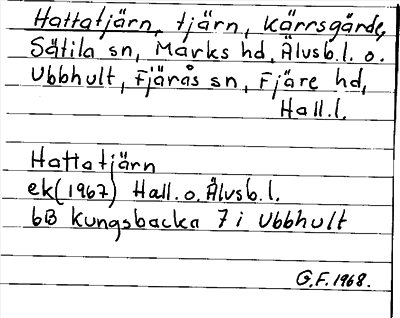 Hattatjärn, tjärn, Kärrsgärde,
Sätila sn, Marks hd, Älvsb.l. o.
Ubbhult, Fjärås sn, Fjäre hd,
Hall.l.
Hattatjärn
ek(1967) Hall.o.Älvsb.l.
6B Kungsbacka 7i Ubbhult
G.F.1968.